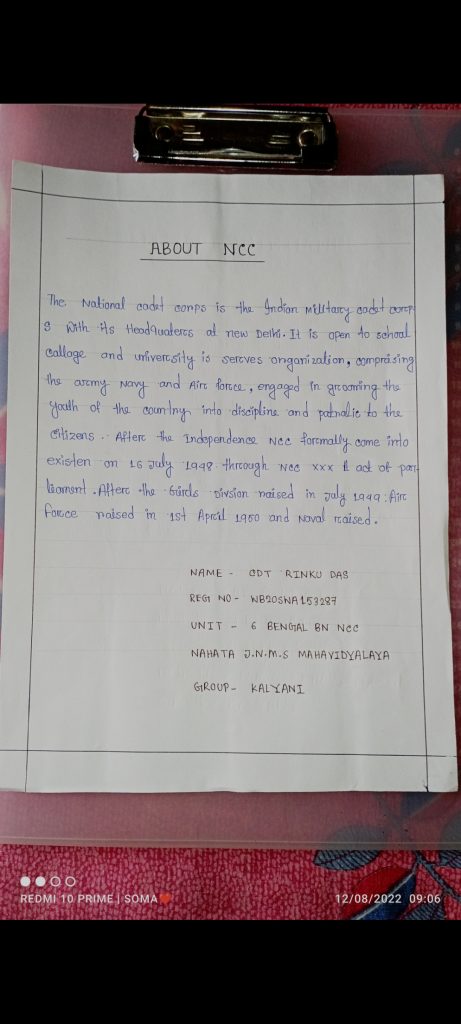 ABOUT NCC
The National cadet corps is the Indian military cadet corp
s With its Headquaters at new Delhi. It is open to school
callage and univercsity is serves onganization, comprising
the army Navy and Air force, engaged in grooming the
youth of the country into discipline and patnalic to the
citizens. Afterc the Independence Ncc formally come into
existen on 16 July 1948 through Ncc xxx act of par-
liament. Afterc the Guirds division raised in July 1949. Air
force raised in 1st April 1950 and Naval raised.
NAME - CDT RINKU DAS
REG NO - WB20SWA153287
UNIT - 6 BENGAL BN NCC
NAHATA J.N.M.S MAHAVIDYALAYA
GROUP - KALYANI
REDMI 10 PRIME | SOMA❤
12/08/2022 09:06